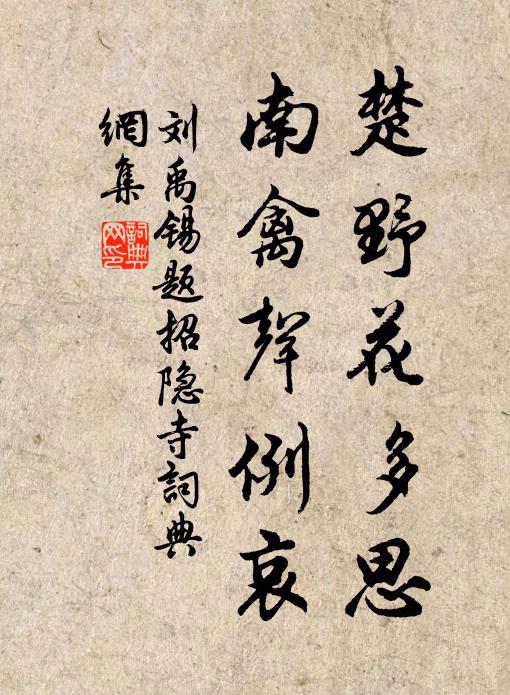 楚野花多思
南禽聲例哀
刘禹锡题招隐寺詞典
網集
詞典网印